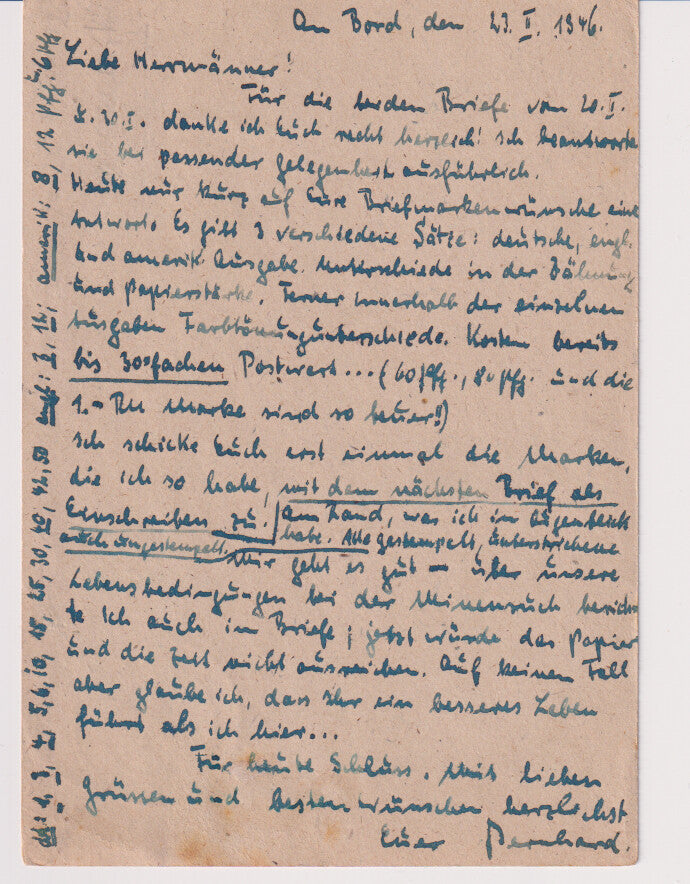 An Bord, den 23. II. 1946.
Liebe Herrmänner!
Für die beiden Briefe vom 20. I.
u. 30. I. danke ich Euch recht herzlich! Ich beantworte
sie bei passender Gelegenheit ausführlich.
Heute nur kurz auf Eure Briefmarkenwünsche eine
Antwort. Es gibt 3 verschiedene Sätze: deutsche, engl.
und amerik. Ausgabe. Unterschiede in der Zähnung
und Papierstärke. Ferner innerhalb der einzelnen
Ausgaben Farbtönungunterschiede. Kosten bereits
bis 30fachen Postwert... (60 Pfg., 80 Pfg. und die
1.- RM Marke sind so teuer!!)
Ich schicke Euch erst einmal die Marken,
die ich so habe, mit dem nächsten Brief als
Einschreiben zu. Am Rand, was ich im Augenblick
habe. Alle gestempelt, unterstrichene
auch ungestempelt.
Mir geht es gut – über unsere
Lebensbedingungen bei der Minensuch berich-
te ich auch im Briefe; jetzt würde das Papier
und die Zeit nicht ausreichen. Auf keinen Fall
aber glaube ich, dass Ihr ein besseres Leben
führt als ich hier...
Für heute Schluss. Mit lieben
Grüssen und besten Wünschen herzlichst
Euer Bernhard.
dt: 1, 3, 4, 5, 6, 10, 15, 25, 30, 40, 42, 50 engl: 3, 12; amerik: 8, 12 Pfg. u. 6 Pfg